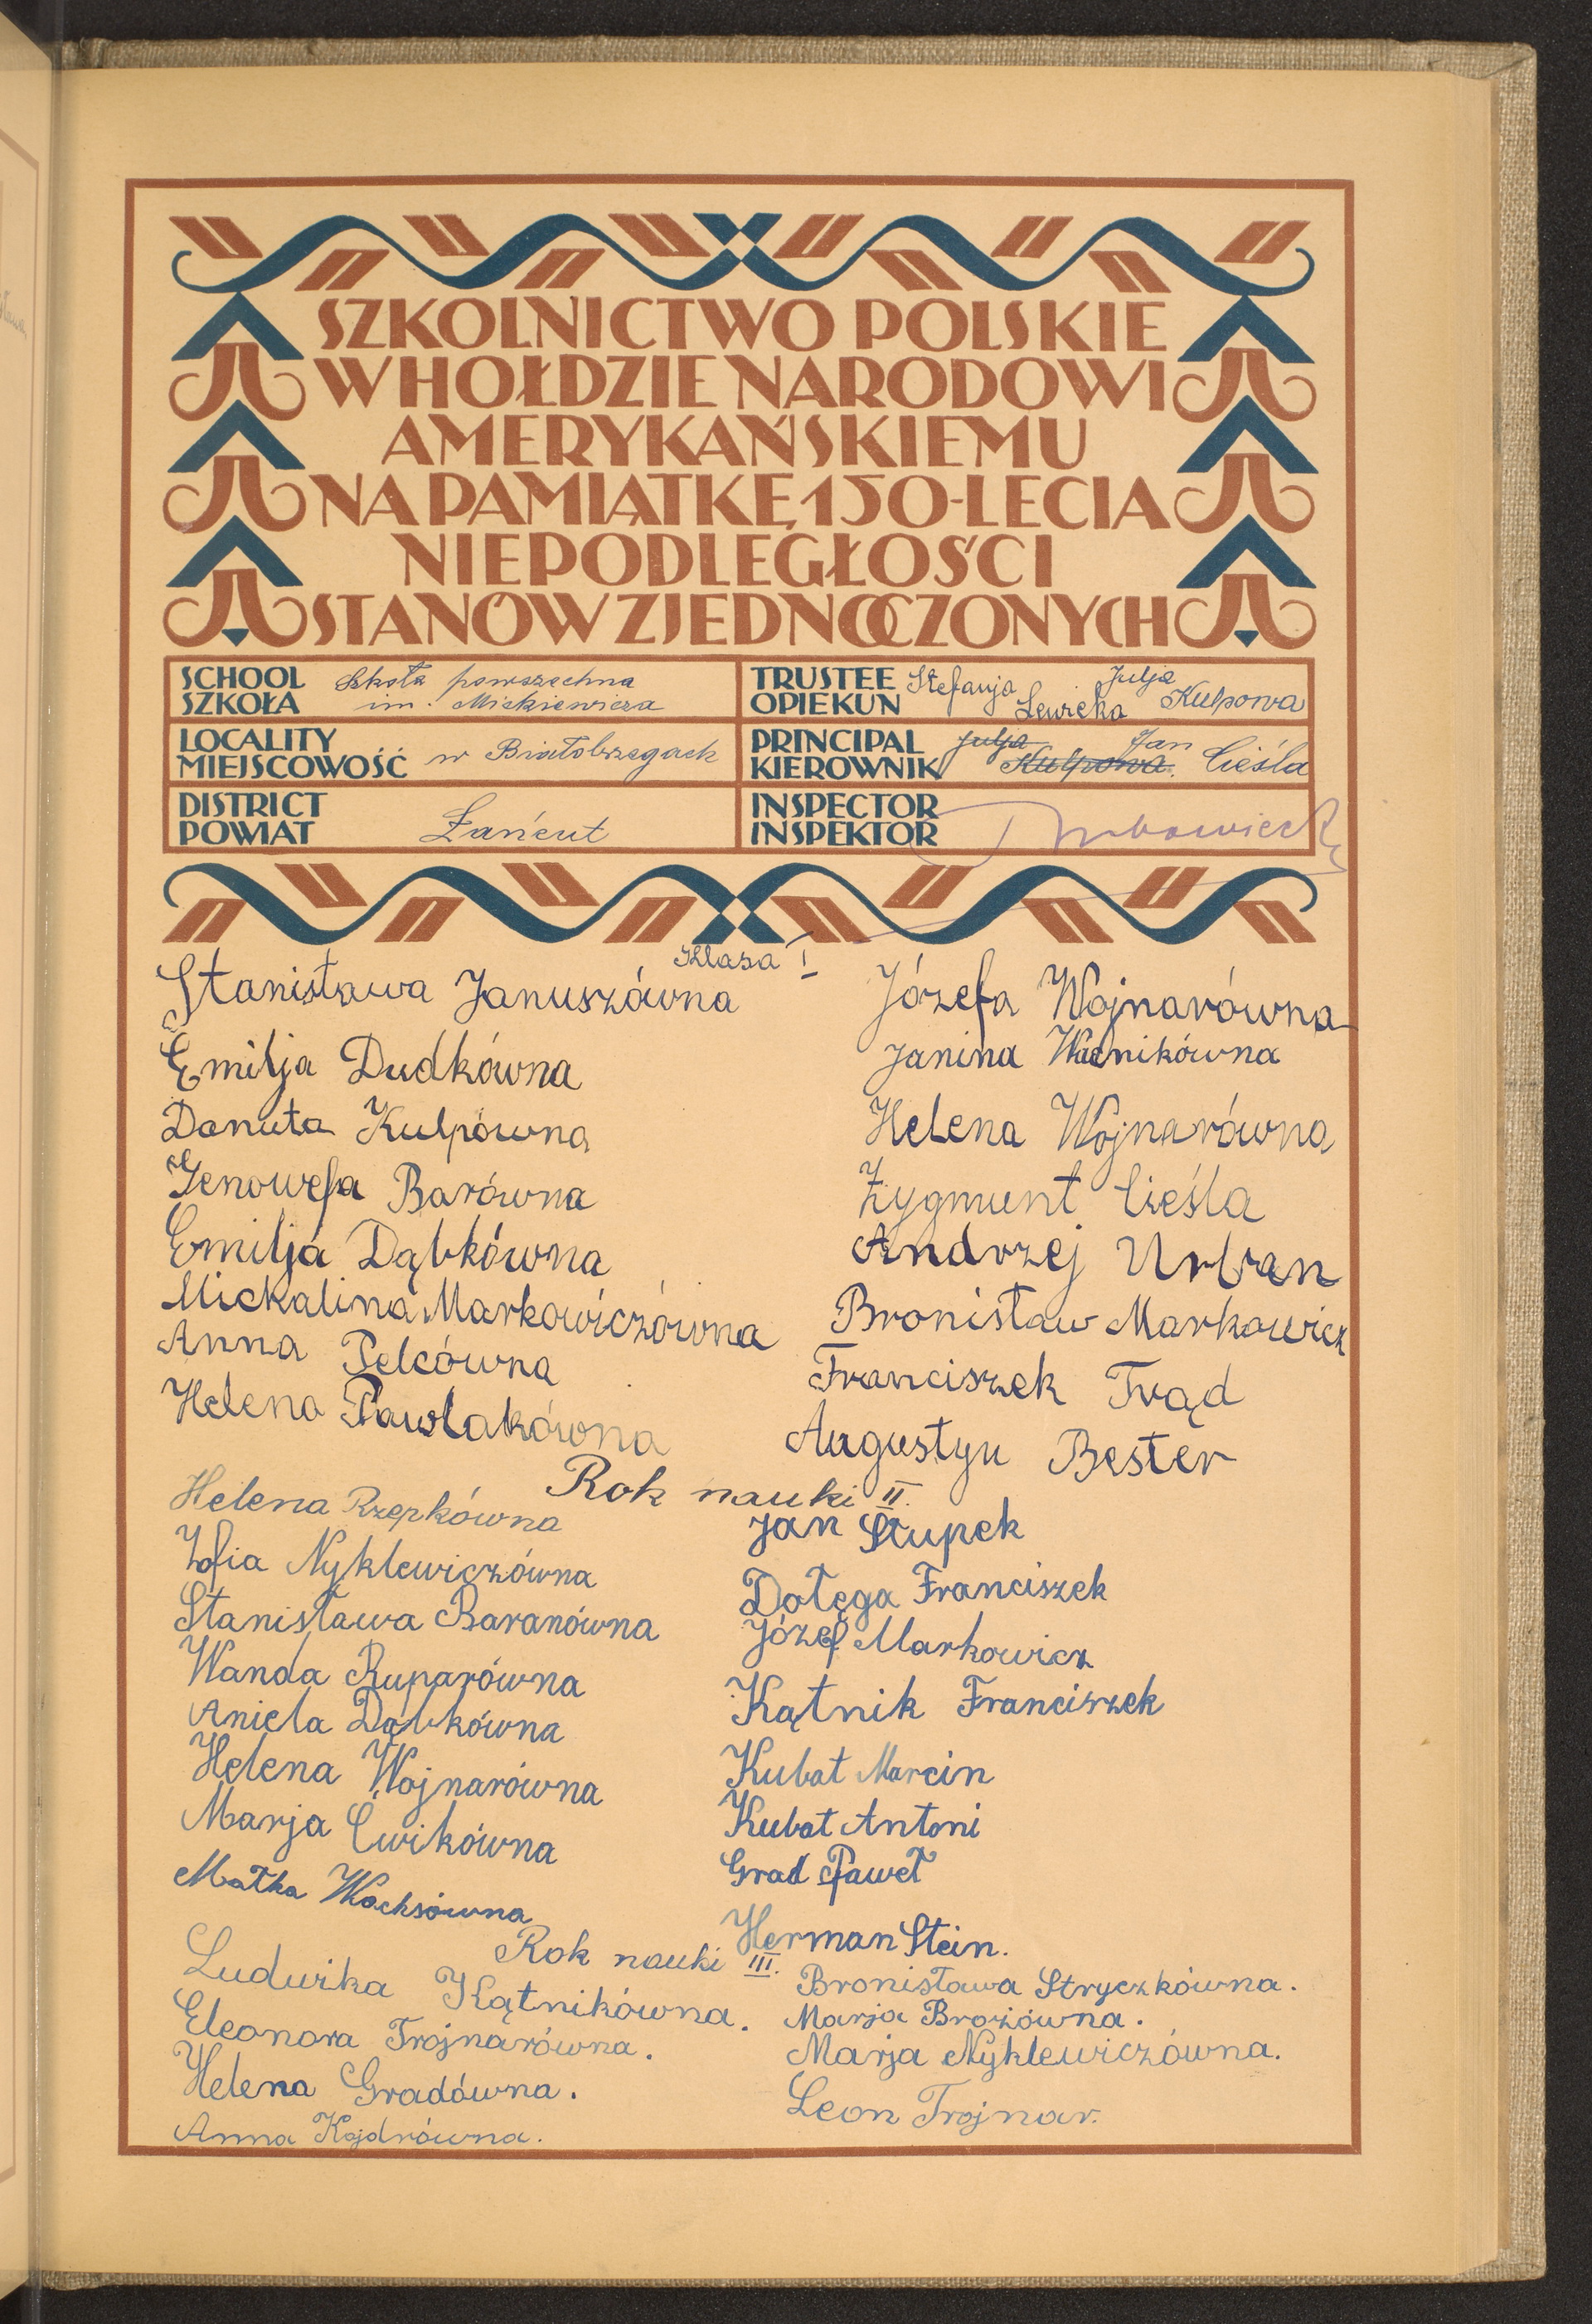 SZKOLNICTWO POLSKIE
W HOŁDZIE NARODOWI
AMERYKAŃSKIEMU
NA PAMIĄTKĘ 150-LECIA
NIEPODLEGŁOŚCI
STANÓW ZJEDNOCZONYCH
SCHOOL
SZKOŁA
Szkoła powszechna
im. Mickiewicza
TRUSTEE
OPIEKUN
Stefanja Lewicka
Julja Kulpowa
LOCALITY
MIEJSCOWOŚĆ
w Białobrzegach
PRINCIPAL
KIEROWNIK
Julja Kulpowa
Jan Cieśla
DISTRICT
POWIAT
Łańcut
INSPECTOR
INSPEKTOR
Klasa I
Stanisława Januszówna
Emilja Dudkówna
Danuta Kulpówna
Genowefa Barówna
Emilja Dąbkówna
Mickalina Markowiczówna
Anna Pelcówna
Helena Pawlakówna
Józefa Wojnarówna
Janina Wacnikówna
Helena Wojnarówna
Zygmunt Cieśla
Andrzej Urban
Bronisław Markowicz
Franciszek Trąd
Augustyn Bester
Rok nauki II.
Helena Rzepkówna
Zofia Nyklewiczówna
Stanisława Baranówna
Wanda Ruparówna
Aniela Dąbkówna
Helena Wojnarówna
Marja Ćwikówna
Matka Wachsówna
Jan Słupek
Dołęga Franciszek
Józef Markowicz
Kątnik Franciszek
Kubat Marcin
Kubat Antoni
Grad Paweł
Herman Stein.
Rok nauki III.
Ludwika Kątnikówna.
Eleonora Trojnarówna.
Helena Gradówna.
Anna Kojdrówna.
Bronisława Stryczkówna.
Marja Brożówna.
Marja Nyklewiczówna.
Leon Trojnar.